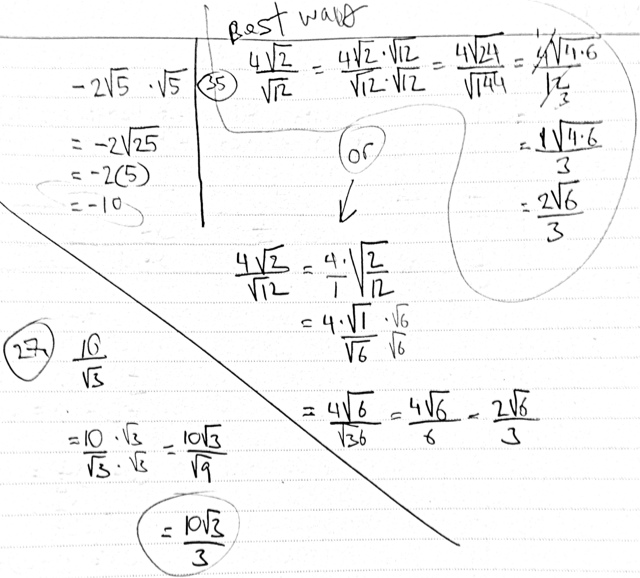 Best ways
-2√5 · √5
= -2√25
= -2(5)
= -10
35 4√2/√12 = 4√2 · √12/√12 · √12 = 4√24/√144 = 4√4·6/12 1 3
= 1√4·6/3
= 2√6/3
or
4√2/√12 = 4/1 · √2/12
= 4 · √1/√6 · √6/√6
= 4√6/√36 = 4√6/6 = 2√6/3
27. 10/√3
= 10/√3 · √3/√3 = 10√3/√9
= 10√3/3